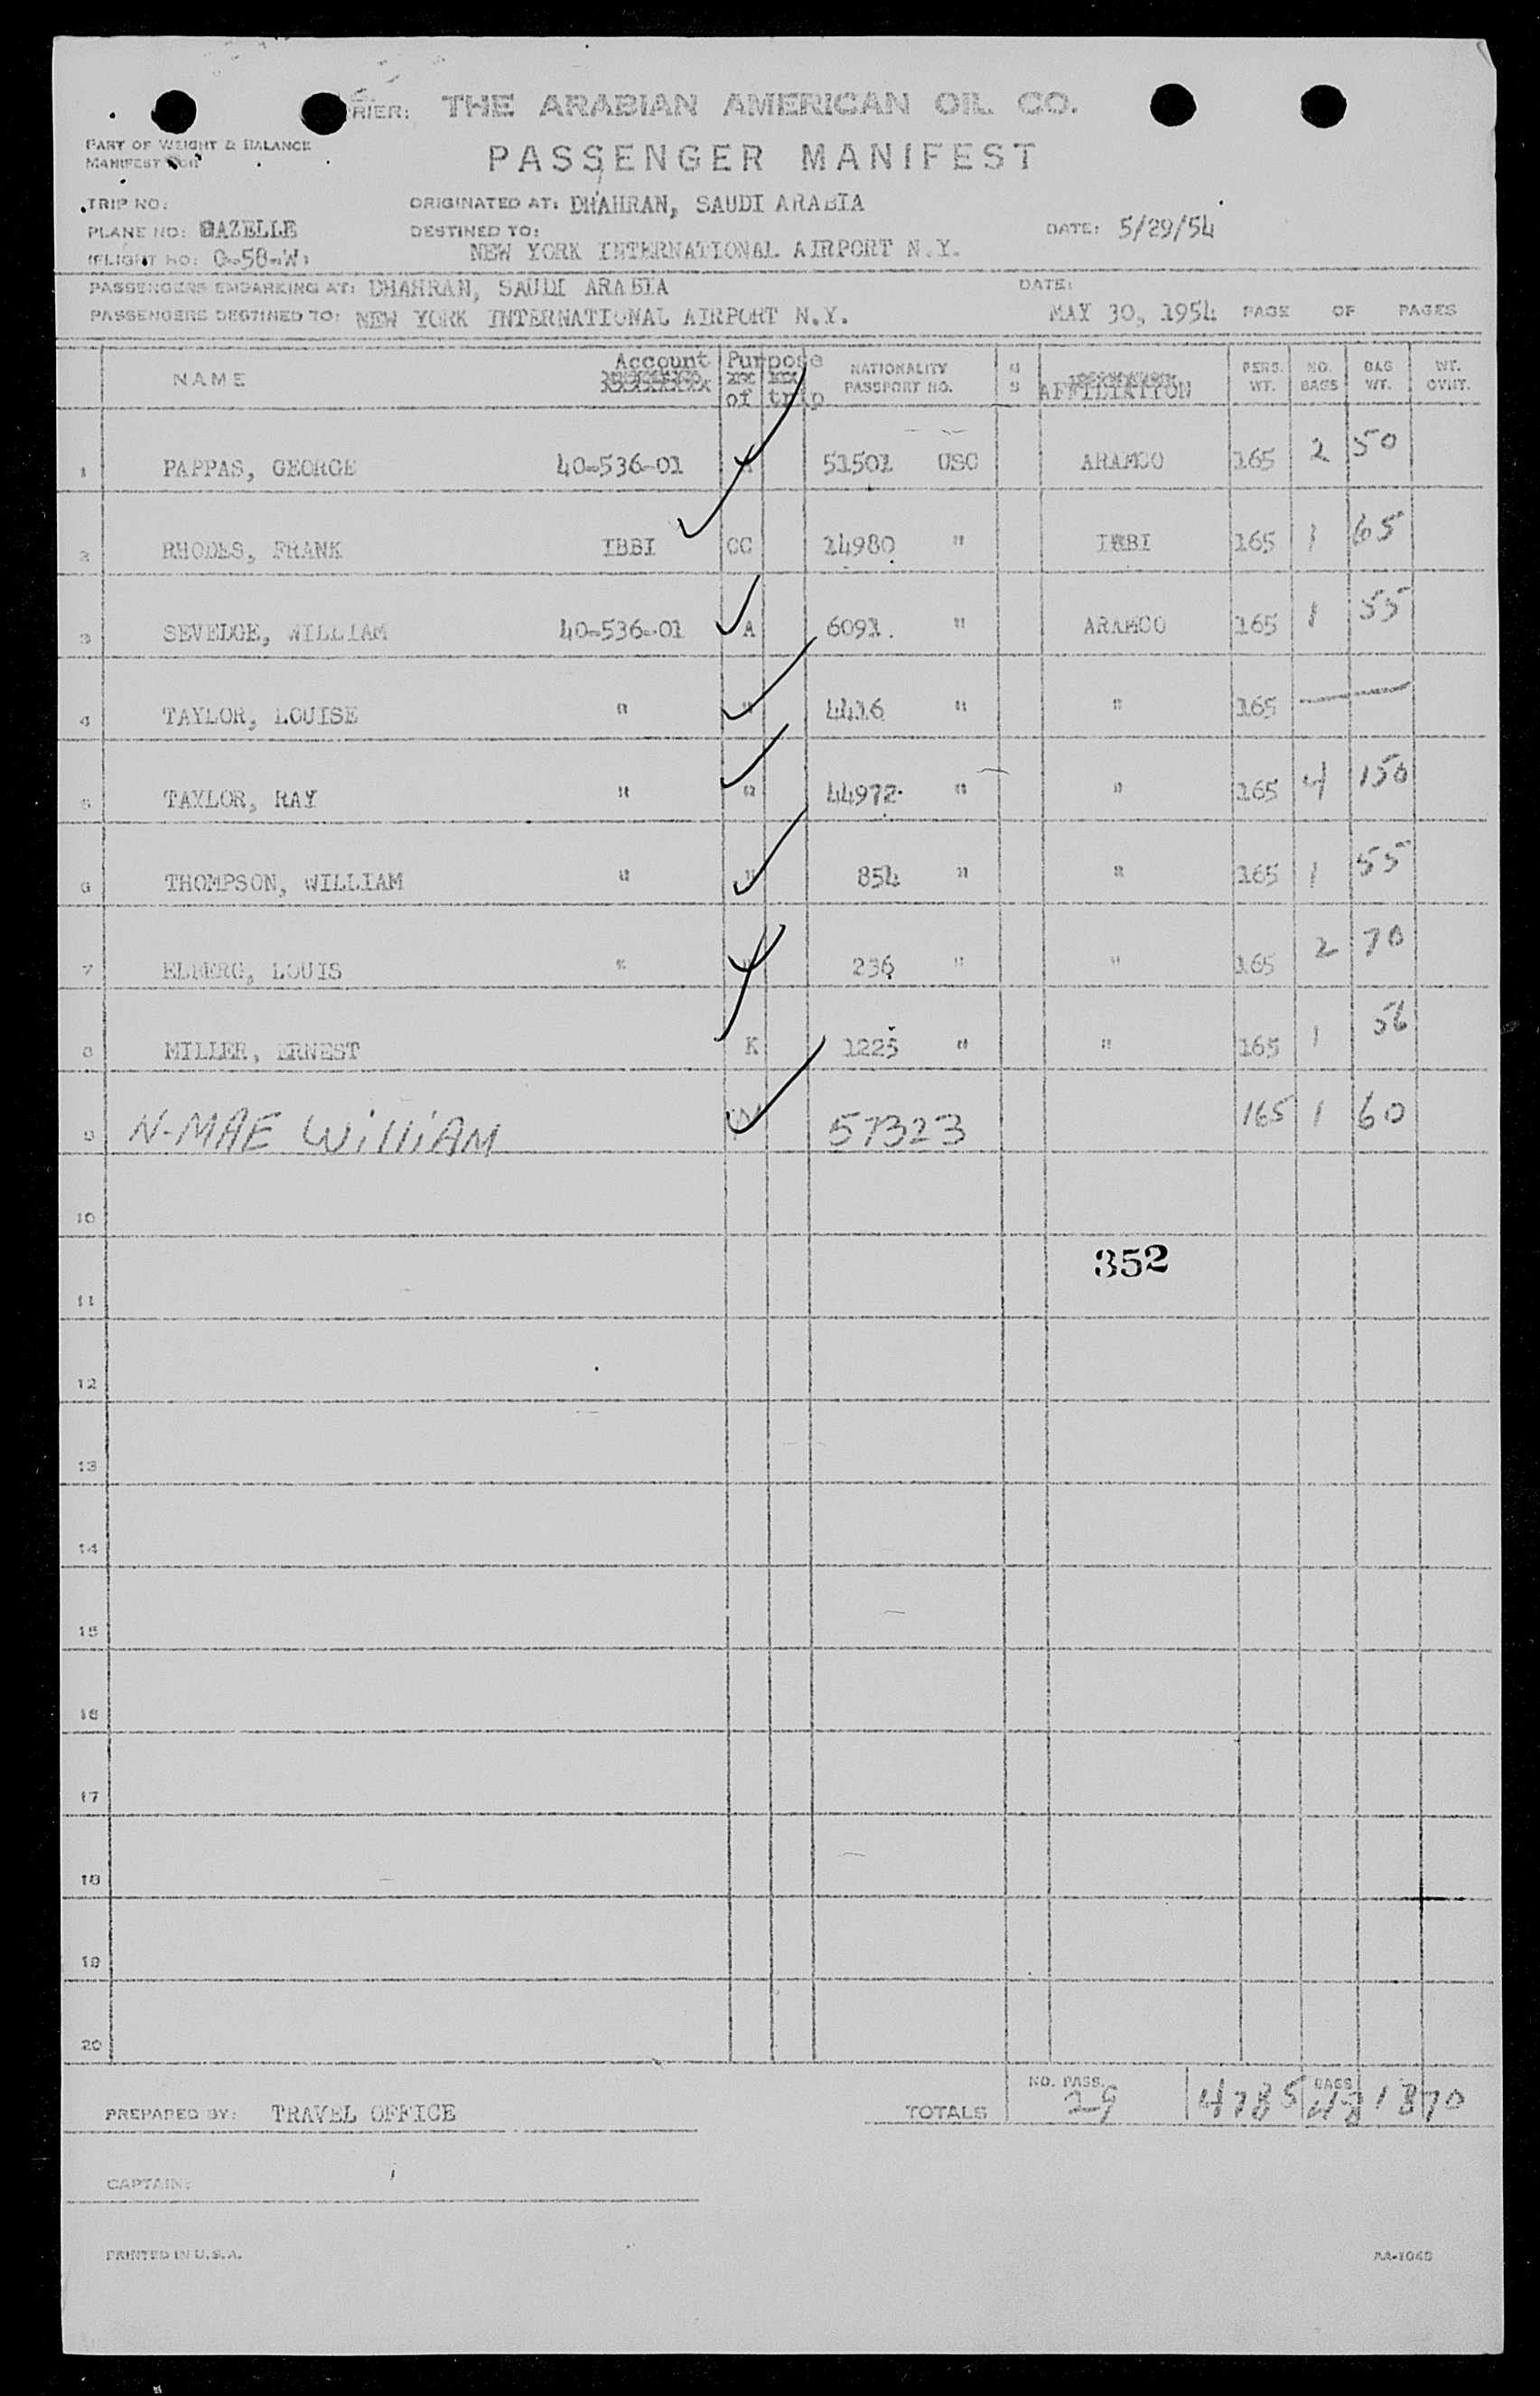 RIER: THE ARABIAN AMERICAN OIL CO.
PART OF WEIGHT & BALANCE
MANIFEST
PASSENGER MANIFEST
TRIP NO:
ORIGINATED AT: DHAHRAN, SAUDI ARABIA
PLANE NO: GAZELLE
DESTINED TO:
DATE: 5/29/54
(FLIGHT NO: O-58-W)
NEW YORK INTERNATIONAL AIRPORT N.Y.
PASSENGERS EMBARKING AT: DHAHRAN, SAUDI ARABIA
DATE:
PASSENGERS DESTINED TO: NEW YORK INTERNATIONAL AIRPORT N.Y.
MAY 30, 1954 PAGE OF PAGES
NAME Account Purpose of trip NATIONALITY PASSPORT NO. AFFILIATION PERS. WT. NO. BAGS BAG WT. WT. OVHT.
1 PAPPAS, GEORGE 40-536-01 A 51501 USC ARAMCO 165 2 50
2 RHODES, FRANK IBBI CC 14980 " IBBI 165 1 65
3 SEVEDGE, WILLIAM 40-536-01 A 6091 " ARAMCO 165 1 55
4 TAYLOR, LOUISE " " 4416 " " 165
5 TAYLOR, RAY " " 44972 " " 165 4 150
6 THOMPSON, WILLIAM " " 854 " " 165 1 55
7 ELBERG, LOUIS " " 236 " " 165 2 70
8 MILLER, ERNEST K 1225 " " 165 1 56
9 N-MAE WilliAM 57323 165 1 60
10
352
11
12
13
14
15
16
17
18
19
20
PREPARED BY: TRAVEL OFFICE TOTALS NO. PASS. 29 4785 BAGS 1870
CAPTAIN:
PRINTED IN U.S.A. AA-1040